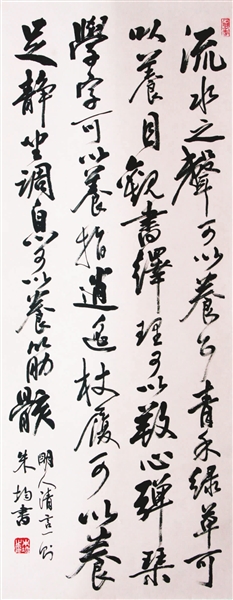 流水之聲可以養耳青禾綠草可
以養目觀書繹理可以養心彈琴
學字可以養指逍遙杖履可以養
足靜坐調息可以養筋骸
明人清言一則
朱均書